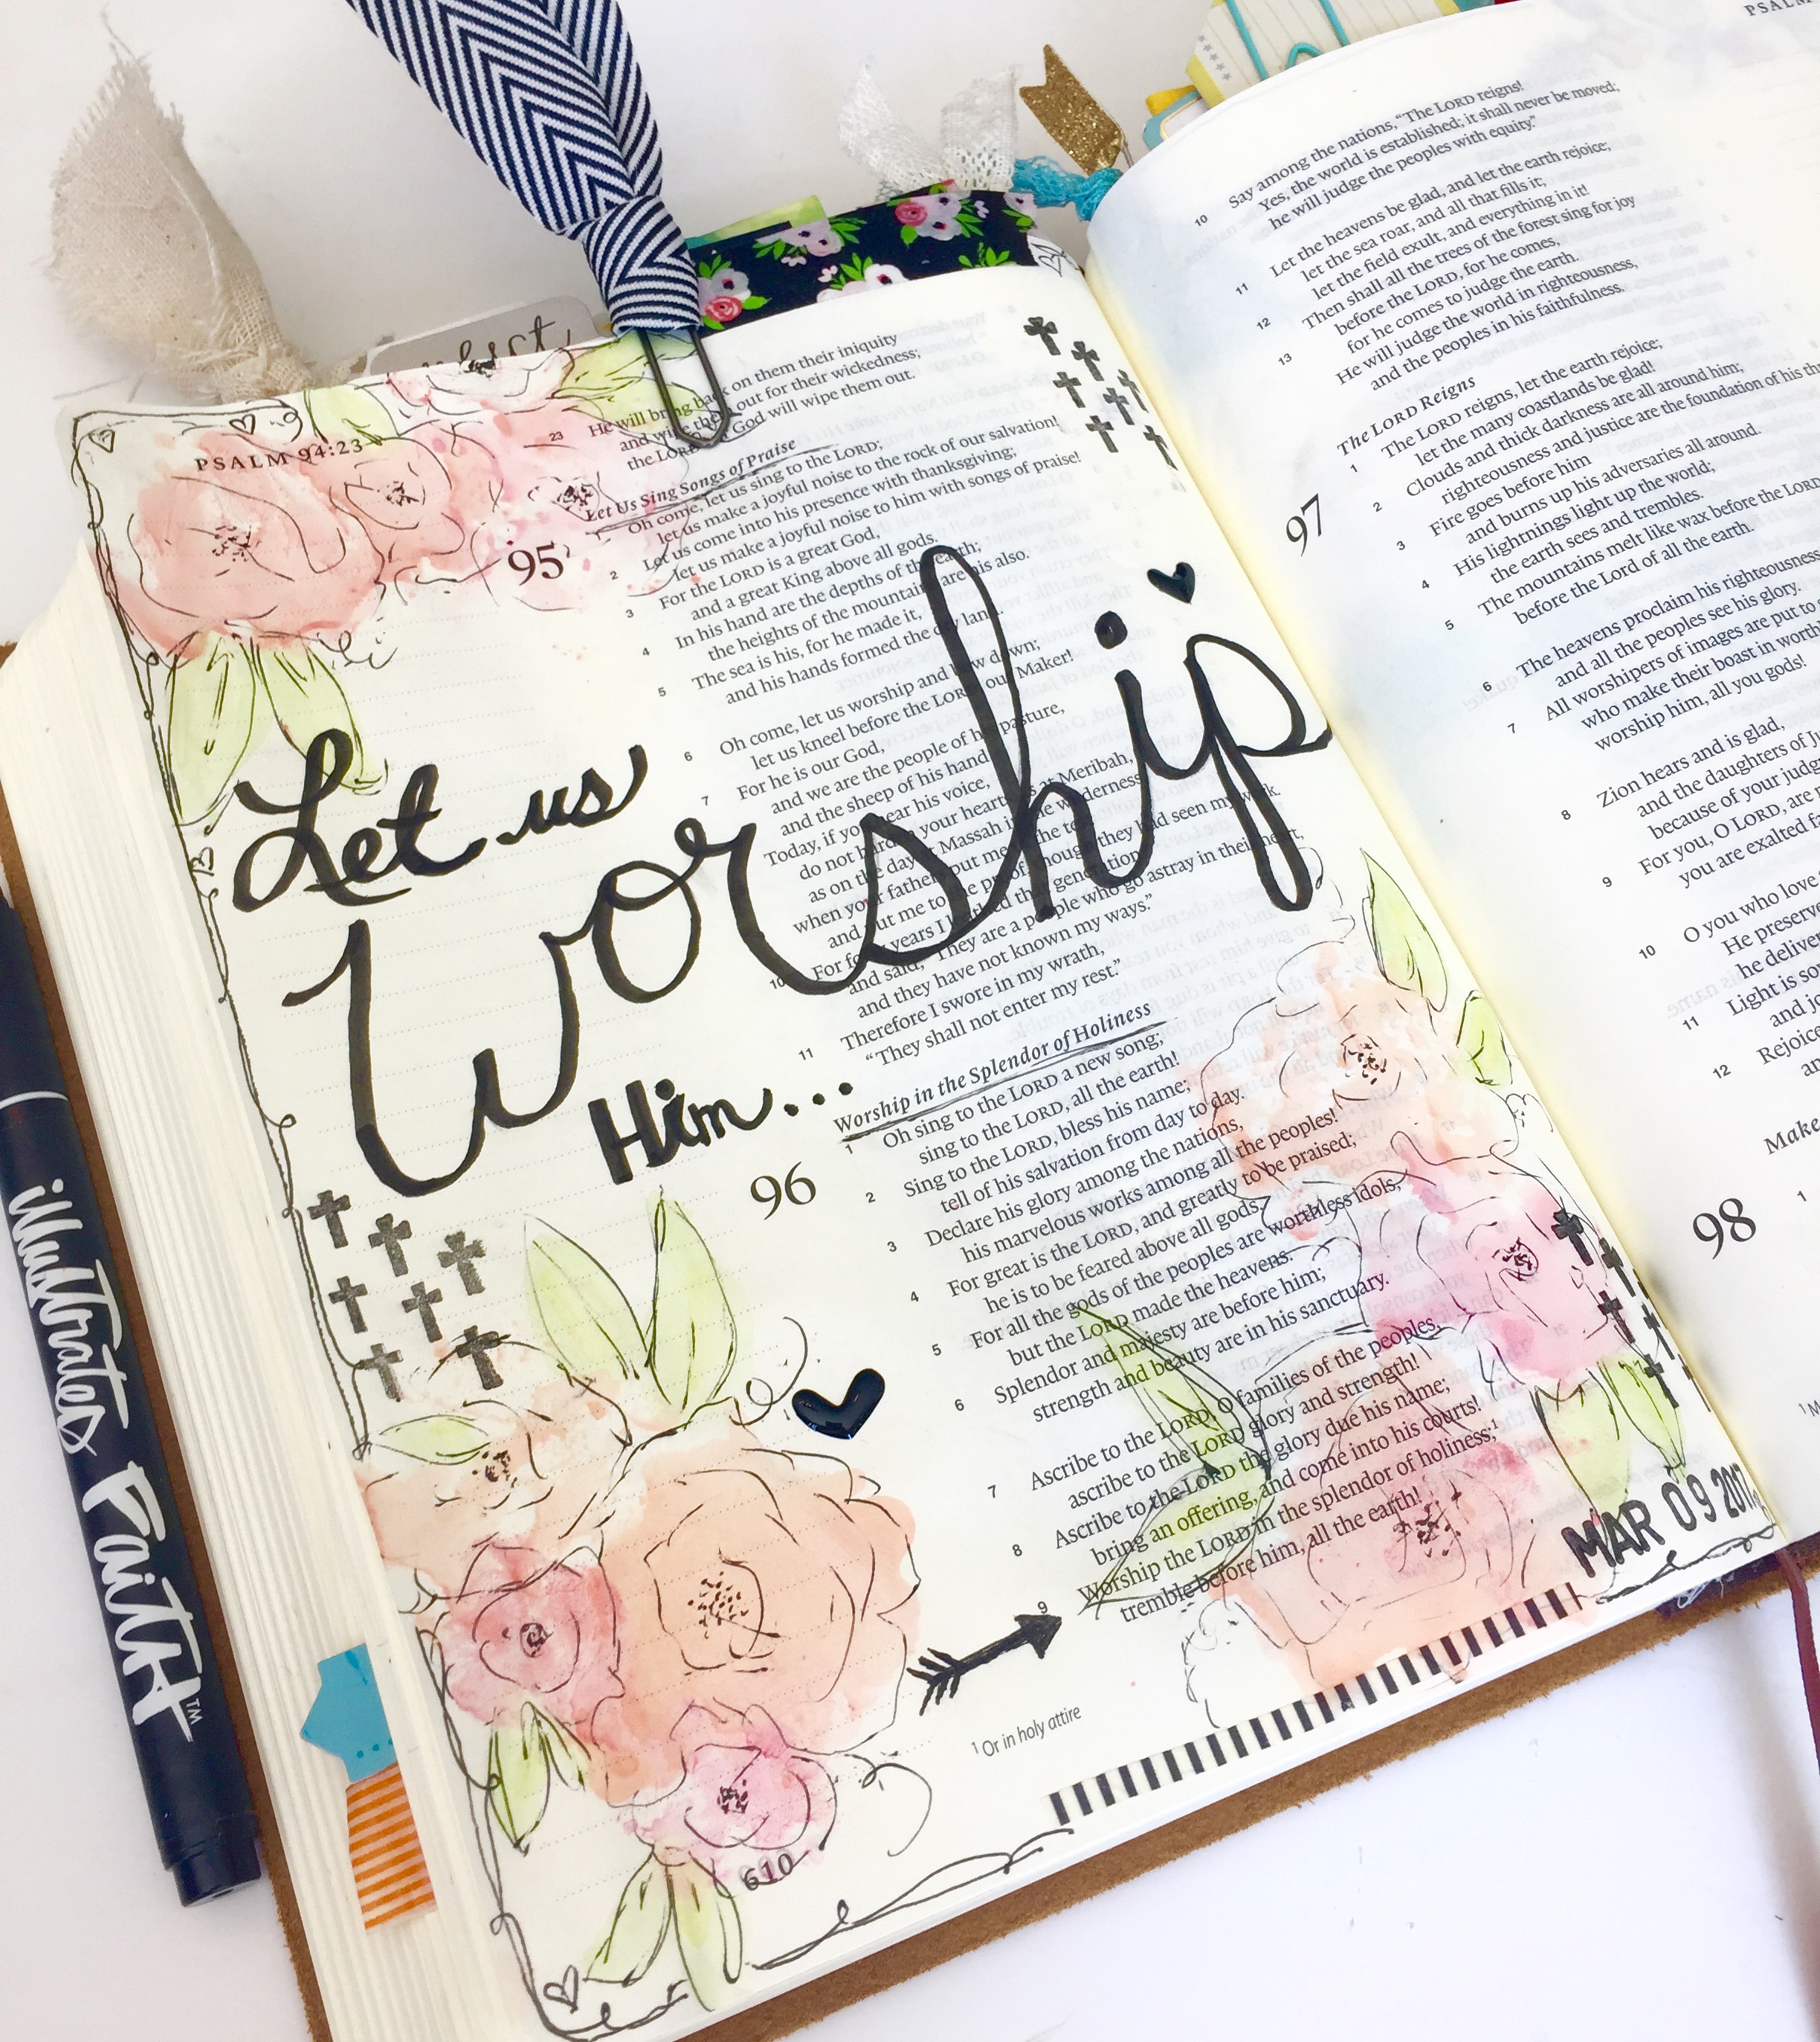 PSALM 94:23
23 He will bring back on them their iniquity
and wipe them out for their wickedness;
the LORD our God will wipe them out.
Let Us Sing Songs of Praise
95
Oh come, let us sing to the LORD;
let us make a joyful noise to the rock of our salvation!
2 Let us come into his presence with thanksgiving;
let us make a joyful noise to him with songs of praise!
3 For the LORD is a great God,
and a great King above all gods.
4 In his hand are the depths of the earth;
the heights of the mountains are his also.
5 The sea is his, for he made it,
and his hands formed the dry land.
6 Oh come, let us worship and bow down;
let us kneel before the LORD, our Maker!
7 For he is our God,
and we are the people of his pasture,
and the sheep of his hand.
Today, if you hear his voice,
do not harden your hearts, as at Meribah,
as on the day at Massah in the wilderness,
when your fathers put me to the test
and put me to the proof, though they had seen my work.
10 For forty years I loathed that generation
and said, "They are a people who go astray in their heart,
and they have not known my ways."
11 Therefore I swore in my wrath,
"They shall not enter my rest."
Let us
worship
Him...
Worship in the Splendor of Holiness
96
1 Oh sing to the LORD a new song;
sing to the LORD, all the earth!
2 Sing to the LORD, bless his name;
tell of his salvation from day to day.
3 Declare his glory among the nations,
his marvelous works among all the peoples!
4 For great is the LORD, and greatly to be praised;
he is to be feared above all gods.
5 For all the gods of the peoples are worthless idols,
but the LORD made the heavens.
6 Splendor and majesty are before him;
strength and beauty are in his sanctuary.
7 Ascribe to the LORD, O families of the peoples,
ascribe to the LORD glory and strength!
8 Ascribe to the LORD the glory due his name;
bring an offering, and come into his courts!
9 Worship the LORD in the splendor of holiness;1
tremble before him, all the earth!
MAR 09 2017
1 Or in holy attire
610
illustrated FaitH™
PSALM
10 Say among the nations, "The LORD reigns!
Yes, the world is established; it shall never be moved;
he will judge the peoples with equity."
11 Let the heavens be glad, and let the earth rejoice;
let the sea roar, and all that fills it;
12 let the field exult, and everything in it!
Then shall all the trees of the forest sing for joy
13 before the LORD, for he comes,
for he comes to judge the earth.
He will judge the world in righteousness,
and the peoples in his faithfulness.
The LORD Reigns
97
1 The LORD reigns, let the earth rejoice;
let the many coastlands be glad!
2 Clouds and thick darkness are all around him;
righteousness and justice are the foundation of his
3 Fire goes before him
and burns up his adversaries all around.
4 His lightnings light up the world;
the earth sees and trembles.
5 The mountains melt like wax before the LORD
before the Lord of all the earth.
6 The heavens proclaim his righteousness
and all the peoples see his glory.
7 All worshipers of images are put to
who make their boast in
worship him, all you gods!
8 Zion hears and is glad,
and the daughters of
because of your
9 For you, O LORD, are
you are exalted
10 O you who love
He preserves
he delivers
11 Light is
and
12 Rejoice
Make
98
1